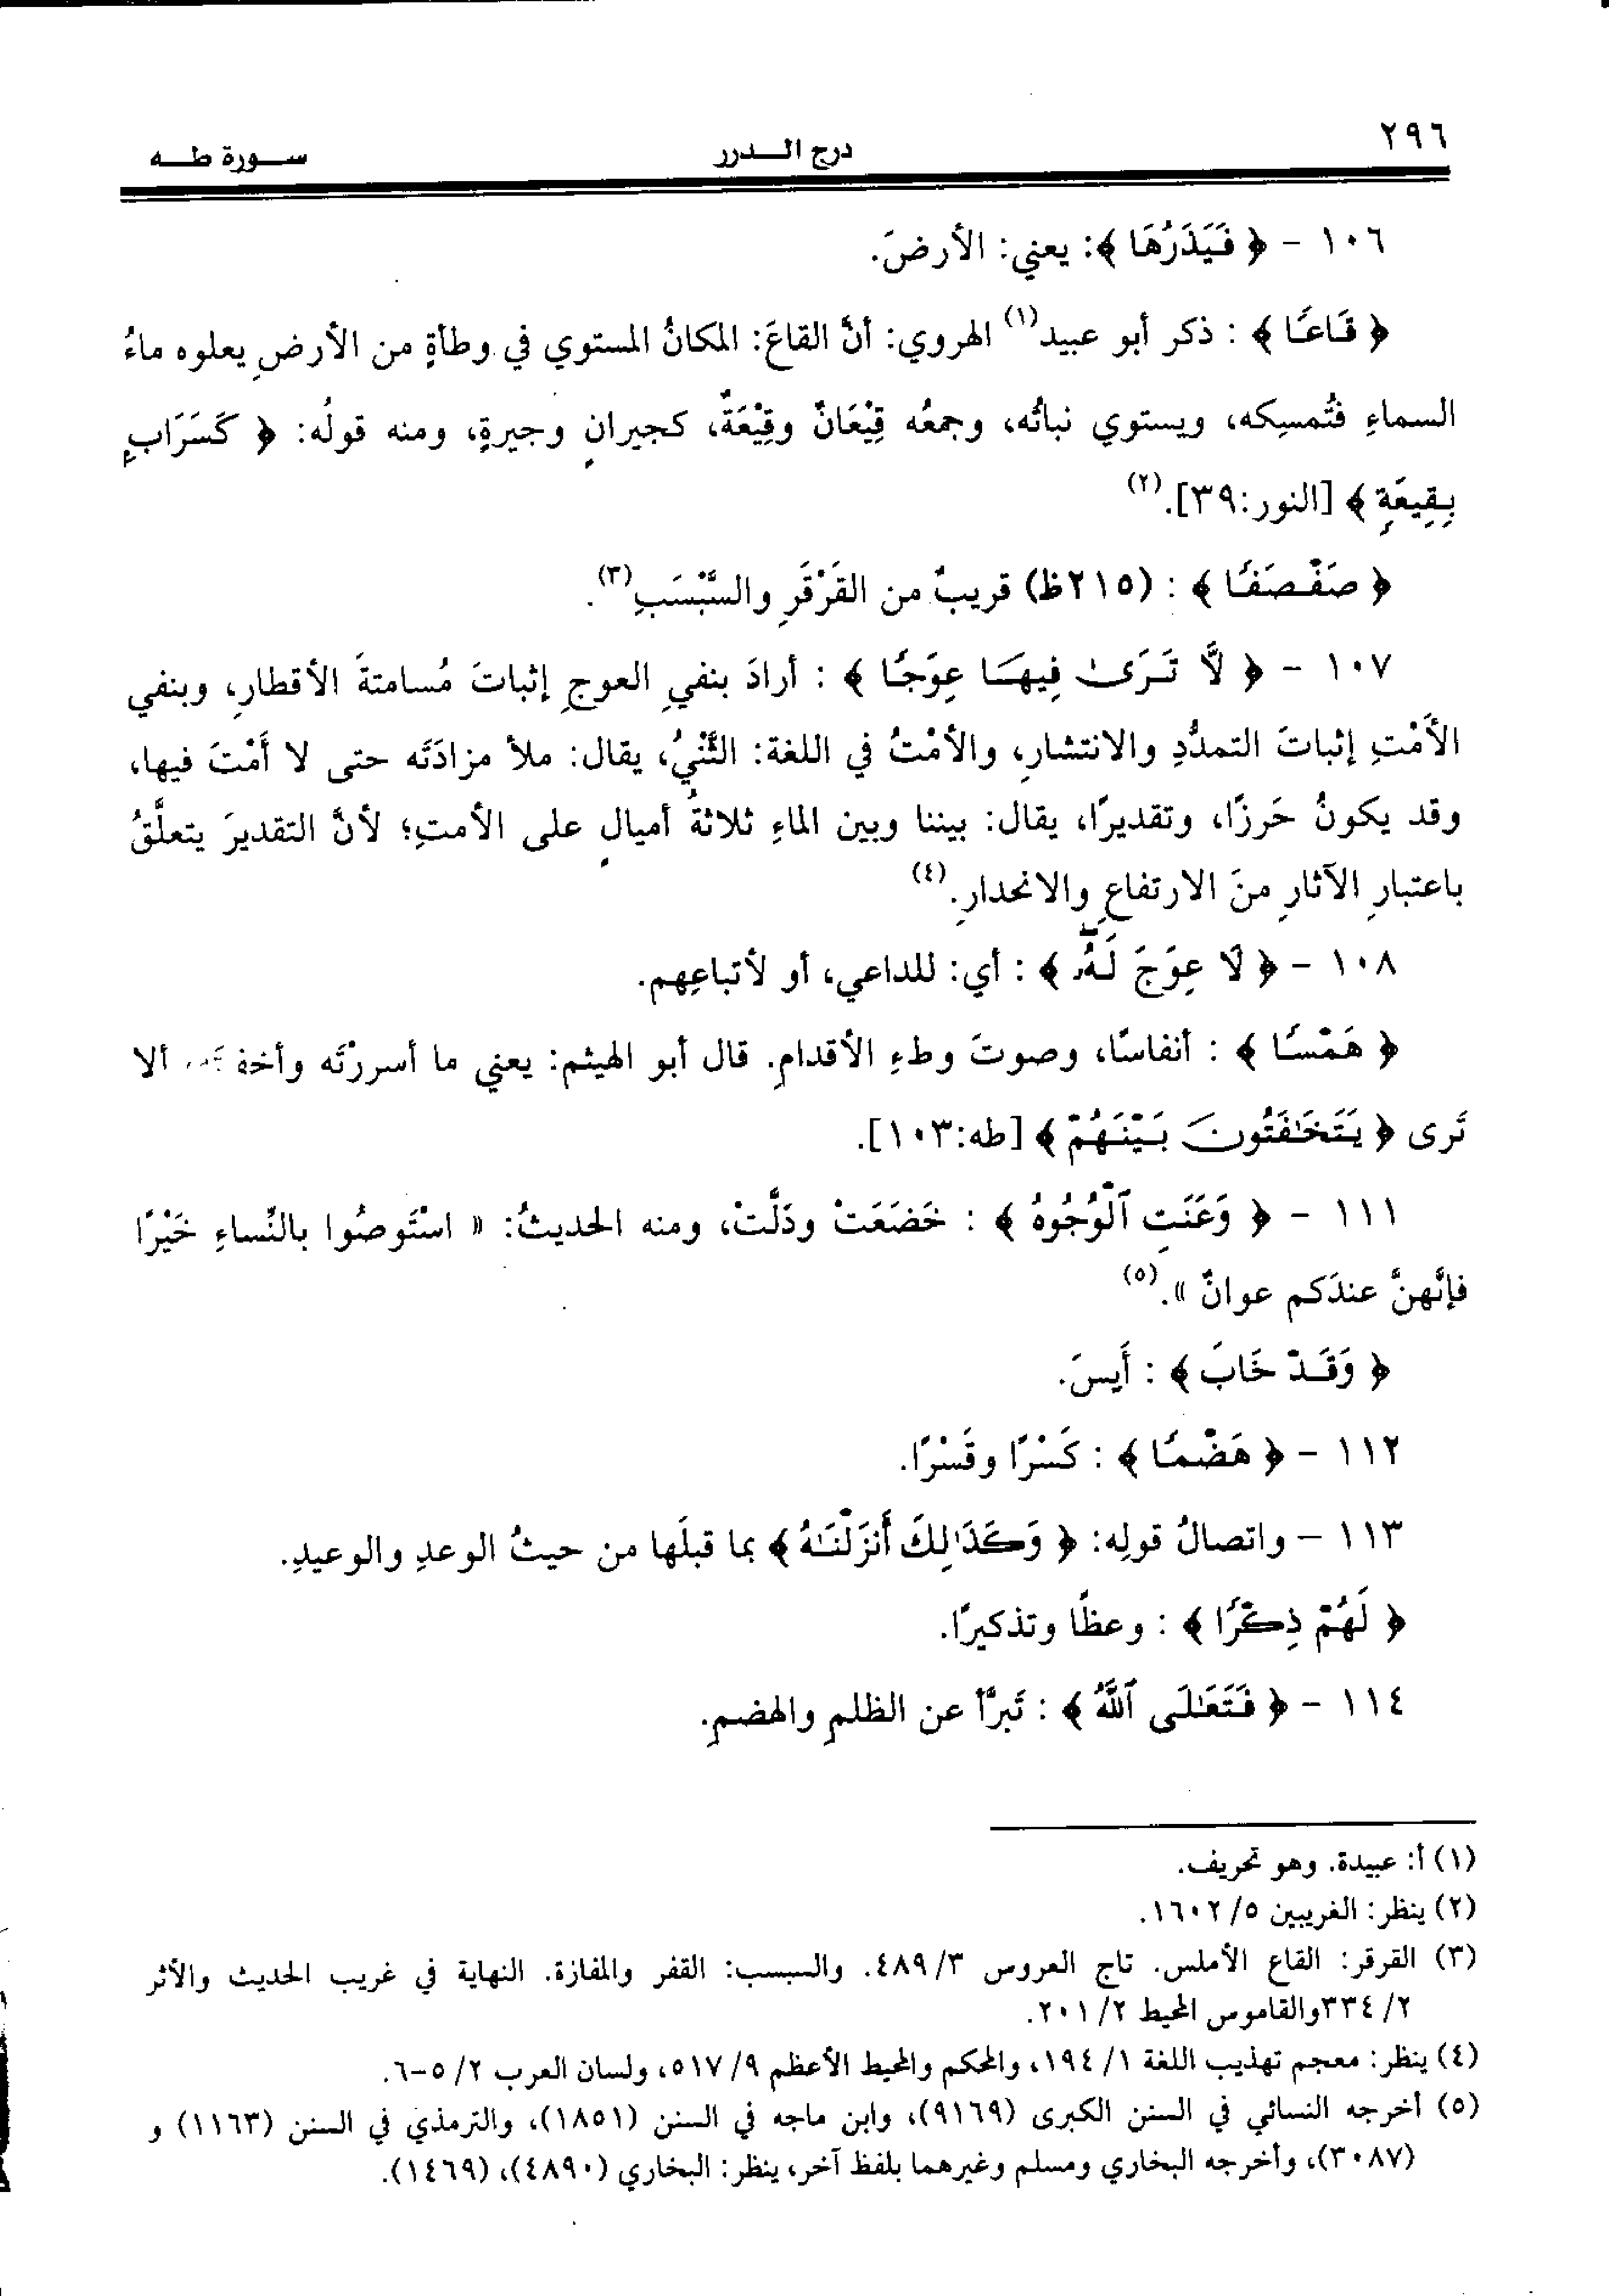 ٢٩٦
درج الـــدرر
ســـورة طـــه
١٠٦ - ﴿ فَيَذَرُهَا ﴾: يعني: الأرضَ.
﴿ قَاعًا ﴾ : ذكر أبو عبيد(١) الهروي: أنَّ القاعَ: المكانُ المستوي في وطأةٍ من الأرضِ يعلوه ماءُ
السماءِ فتُمسِكه، ويستوي نباتُه، وجمعُه قِيْعَانٌ وقِيْعَةٌ، كجيرانٍ وجيرةٍ، ومنه قولُه: ﴿ كَسَرَابٍ
بِقِيعَةٍ ﴾ [النور:٣٩].(٢)
﴿ صَفْصَفًا ﴾ : (٢١٥ظ) قريبٌ من القَرْقَرِ والسَّبْسَبِ(٣).
١٠٧ - ﴿ لَّا تَرَىٰ فِيهَا عِوَجًا ﴾ : أرادَ بنفيِ العوجِ إثباتَ مُسامتةَ الأقطارِ، وبنفي
الأَمْتِ إثباتَ التمدُّدِ والانتشارِ، والأمْتُ في اللغة: الثَّنْيُ، يقال: ملأ مزادَتَه حتى لا أَمْتَ فيها،
وقد يكونُ حَرزًا، وتقديرًا، يقال: بيننا وبين الماءِ ثلاثةُ أميالٍ على الأمتِ؛ لأنَّ التقديرَ يتعلَّقُ
باعتبارِ الآثارِ منَ الارتفاعِ والانحدارِ.(٤)
١٠٨ - ﴿ لَا عِوَجَ لَهُۥ ﴾ : أي: للداعي، أو لأتباعِهم.
﴿ هَمْسًا ﴾ : أنفاسًا، وصوتَ وطءِ الأقدامِ. قال أبو الهيثم: يعني ما أسررْتَه ألا
تَرى ﴿ يَتَخَـٰفَتُونَ بَيْنَهُمْ ﴾ [طه:١٠٣].
١١١ - ﴿ وَعَنَتِ ٱلْوُجُوهُ ﴾ : خَضَعَتْ وذَلَّتْ، ومنه الحديثُ: « اسْتَوصُوا بالنِّساءِ خَيْرًا
فإنَّهنَّ عندَكم عوانٌ ».(٥)
﴿ وَقَدْ خَابَ ﴾ : أَيِسَ.
١١٢ - ﴿ هَضْمًا ﴾ : كَسْرًا وقَسْرًا.
١١٣ - واتصالُ قولِه: ﴿ وَكَذَٰلِكَ أَنزَلْنَـٰهُ ﴾ بما قبلَها من حيثُ الوعدِ والوعيدِ.
﴿ لَهُمْ ذِكْرًا ﴾ : وعظًا وتذكيرًا.
١١٤ - ﴿ فَتَعَـٰلَى ٱللَّهُ ﴾ : تَبرَّأ عن الظلمِ والهضمِ.
(١) أ: عبيدة. وهو تحريف.
(٢) ينظر: الغريبين ٥/ ١٦٠٢.
(٣) القرقر: القاع الأملس. تاج العروس ٣/ ٤٨٩. والسبسب: القفر والمفازة. النهاية في غريب الحديث والأثر
٢/ ٣٣٤والقاموس المحيط ٢/ ٢٠١.
(٤) ينظر: معجم تهذيب اللغة ١/ ١٩٤، والمحكم والمحيط الأعظم ٩/ ٥١٧، ولسان العرب ٢/ ٥-٦.
(٥) أخرجه النسائي في السنن الكبرى (٩١٦٩)، وابن ماجه في السنن (١٨٥١)، والترمذي في السنن (١١٦٣) و
(٣٠٨٧)، وأخرجه البخاري ومسلم وغيرهما بلفظ آخر، ينظر: البخاري (٤٨٩٠)، (١٤٦٩).